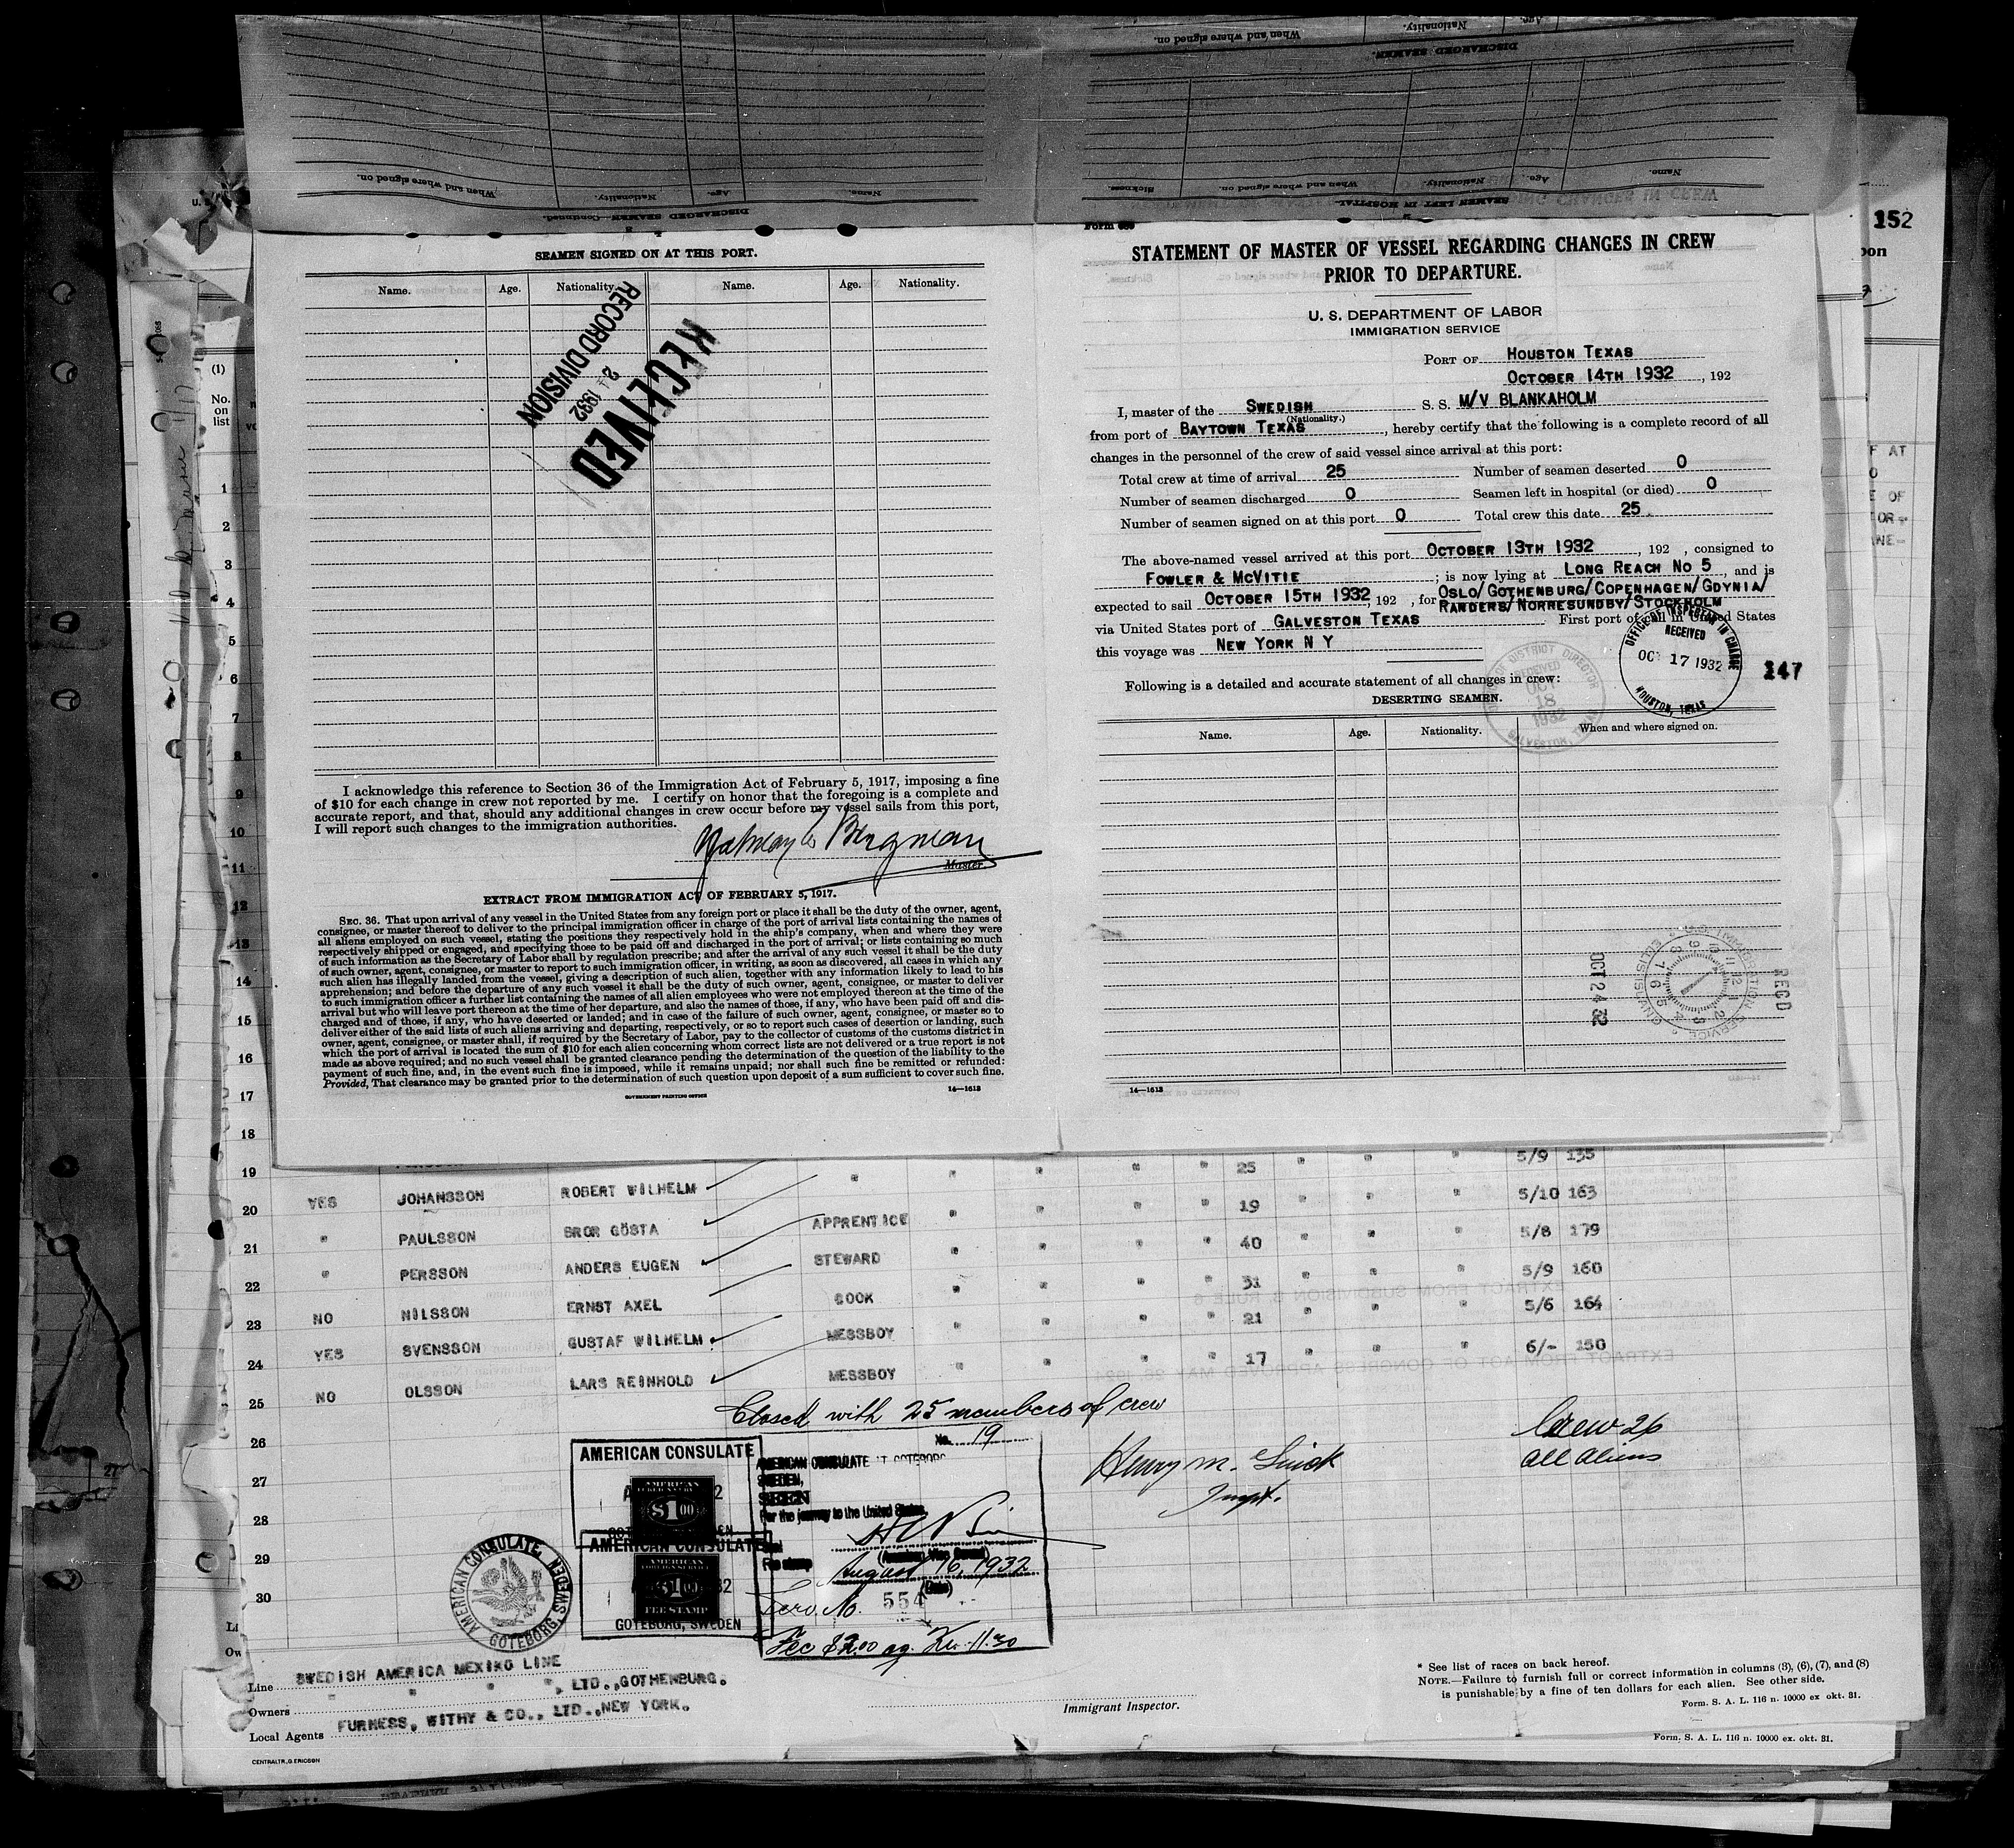 When and where signed on.
Nationality.
Age.
DISCHARGED SEAMEN.
Name.
Age.
Nationality.
When and where signed on.
DISCHARGED SEAMEN—Continued.
Name.
Age.
Nationality.
When and where signed on.
Sickness.
SEAMEN LEFT IN HOSPITAL
152
SEAMEN SIGNED ON AT THIS PORT.
Name. Age. Nationality. Name. Age. Nationality.
RECORD DIVISION
1932
RECEIVED
I acknowledge this reference to Section 36 of the Immigration Act of February 5, 1917, imposing a fine
of $10 for each change in crew not reported by me. I certify on honor that the foregoing is a complete and
accurate report, and that, should any additional changes in crew occur before my vessel sails from this port,
I will report such changes to the immigration authorities.
Bergman
Master.
EXTRACT FROM IMMIGRATION ACT OF FEBRUARY 5, 1917.
SEC. 36. That upon arrival of any vessel in the United States from any foreign port or place it shall be the duty of the owner, agent,
consignee, or master thereof to deliver to the principal immigration officer in charge of the port of arrival lists containing the names of
all aliens employed on such vessel, stating the positions they respectively hold in the ship's company, when and where they were
respectively shipped or engaged, and specifying those to be paid off and discharged in the port of arrival; or lists containing so much
of such information as the Secretary of Labor shall by regulation prescribe; and after the arrival of any such vessel it shall be the duty
of such owner, agent, consignee, or master to report to such immigration officer, in writing, as soon as discovered, all cases in which any
such alien has illegally landed from the vessel, giving a description of such alien, together with any information likely to lead to his
apprehension; and before the departure of any such vessel it shall be the duty of such owner, agent, consignee, or master to deliver
to such immigration officer a further list containing the names of all alien employees who were not employed thereon at the time of the
arrival but who will leave port thereon at the time of her departure, and also the names of those, if any, who have been paid off and dis-
charged and of those, if any, who have deserted or landed; and in case of the failure of such owner, agent, consignee, or master so to
deliver either of the said lists of such aliens arriving and departing, respectively, or so to report such cases of desertion or landing, such
owner, agent, consignee, or master shall, if required by the Secretary of Labor, pay to the collector of customs of the customs district in
which the port of arrival is located the sum of $10 for each alien concerning whom correct lists are not delivered or a true report is not
made as above required; and no such vessel shall be granted clearance pending the determination of the question of the liability to the
payment of such fine, and, in the event such fine is imposed, while it remains unpaid; nor shall such fine be remitted or refunded:
Provided, That clearance may be granted prior to the determination of such question upon deposit of a sum sufficient to cover such fine.
GOVERNMENT PRINTING OFFICE 14—1613
Form
STATEMENT OF MASTER OF VESSEL REGARDING CHANGES IN CREW
PRIOR TO DEPARTURE.
U. S. DEPARTMENT OF LABOR
IMMIGRATION SERVICE
PORT OF HOUSTON TEXAS
OCTOBER 14TH 1932, 192
I, master of the SWEDISH S. S. M/V BLANKAHOLM
(Nationality.)
from port of BAYTOWN TEXAS, hereby certify that the following is a complete record of all
changes in the personnel of the crew of said vessel since arrival at this port:
Total crew at time of arrival 25 Number of seamen deserted 0
Number of seamen discharged 0 Seamen left in hospital (or died) 0
Number of seamen signed on at this port 0 Total crew this date 25
The above-named vessel arrived at this port OCTOBER 13TH 1932, 192 , consigned to
FOWLER & MCVITIE; is now lying at LONG REACH NO 5, and is
expected to sail OCTOBER 15TH 1932, 192 , for OSLO/GOTHENBURG/COPENHAGEN/GDYNIA/
RANDERS/NORRESUNDBY/STOCKHOLM
via United States port of GALVESTON TEXAS First port of call in United States
this voyage was NEW YORK N Y
Following is a detailed and accurate statement of all changes in crew:
DESERTING SEAMEN.
Name. Age. Nationality. When and where signed on.
OFFICE OF INSPECTOR IN CHARGE
RECEIVED
OCT 17 1932
HOUSTON, TEXAS
247
DISTRICT DIRECTOR
RECEIVED
OCT
18
1932
GALVESTON,
OCT 24 32
RECD
IMMIGRATION SERVICE
14—1613
(1)
No.
on
list
1
2
3
4
5
6
7
8
9
10
11
12
13
14
15
16
17
18
19 " " " " " 25 " " " 5/9 135
YES JOHANSSON ROBERT WILHELM
20 " " " " 19 " " " 5/10 163
" PAULSSON BROR GÖSTA APPRENTICE
21 " " " " 40 " " " 5/8 179
" PERSSON ANDERS EUGEN STEWARD
22 " " " " 31 " " " 5/9 160
NO NILSSON ERNST AXEL COOK
23 " " " " 21 " " " 5/6 164
YES SVENSSON GUSTAF WILHELM MESSBOY
24 " " " " 17 " " " 6/- 150
NO OLSSON LARS REINHOLD MESSBOY
25 Closed with 25 members of crew
26
27
28
29
30
Crew 26
all aliens
Henry M.
Inspt.
No. 19
AMERICAN CONSULATE
$1.00
AMERICAN CONSULATE
AMERICAN
FOREIGN SERVICE
$1.00
FEE STAMP
GOTEBORG, SWEDEN
AMERICAN CONSULATE AT GOTEBORG
SWEDEN,
For the journey to the United States.
August 16, 1932
(Date)
Serv. No. 554
Fee $2.00 eq. Kr. 11.30
AMERICAN CONSULATE, GOTEBORG, SWEDEN
Line SWEDISH AMERICA MEXIKO LINE
Owners " " " ", LTD., GOTHENBURG.
Local Agents FURNESS, WITHY & CO., LTD., NEW YORK.
CENTRALTR., G. ERICSON
Immigrant Inspector.
* See list of races on back hereof.
NOTE.—Failure to furnish full or correct information in columns (3), (6), (7), and (8)
is punishable by a fine of ten dollars for each alien. See other side.
Form. S. A. L. 116 n. 10000 ex okt. 31.
Form. S. A. L. 116 n. 10000 ex. okt. 31.